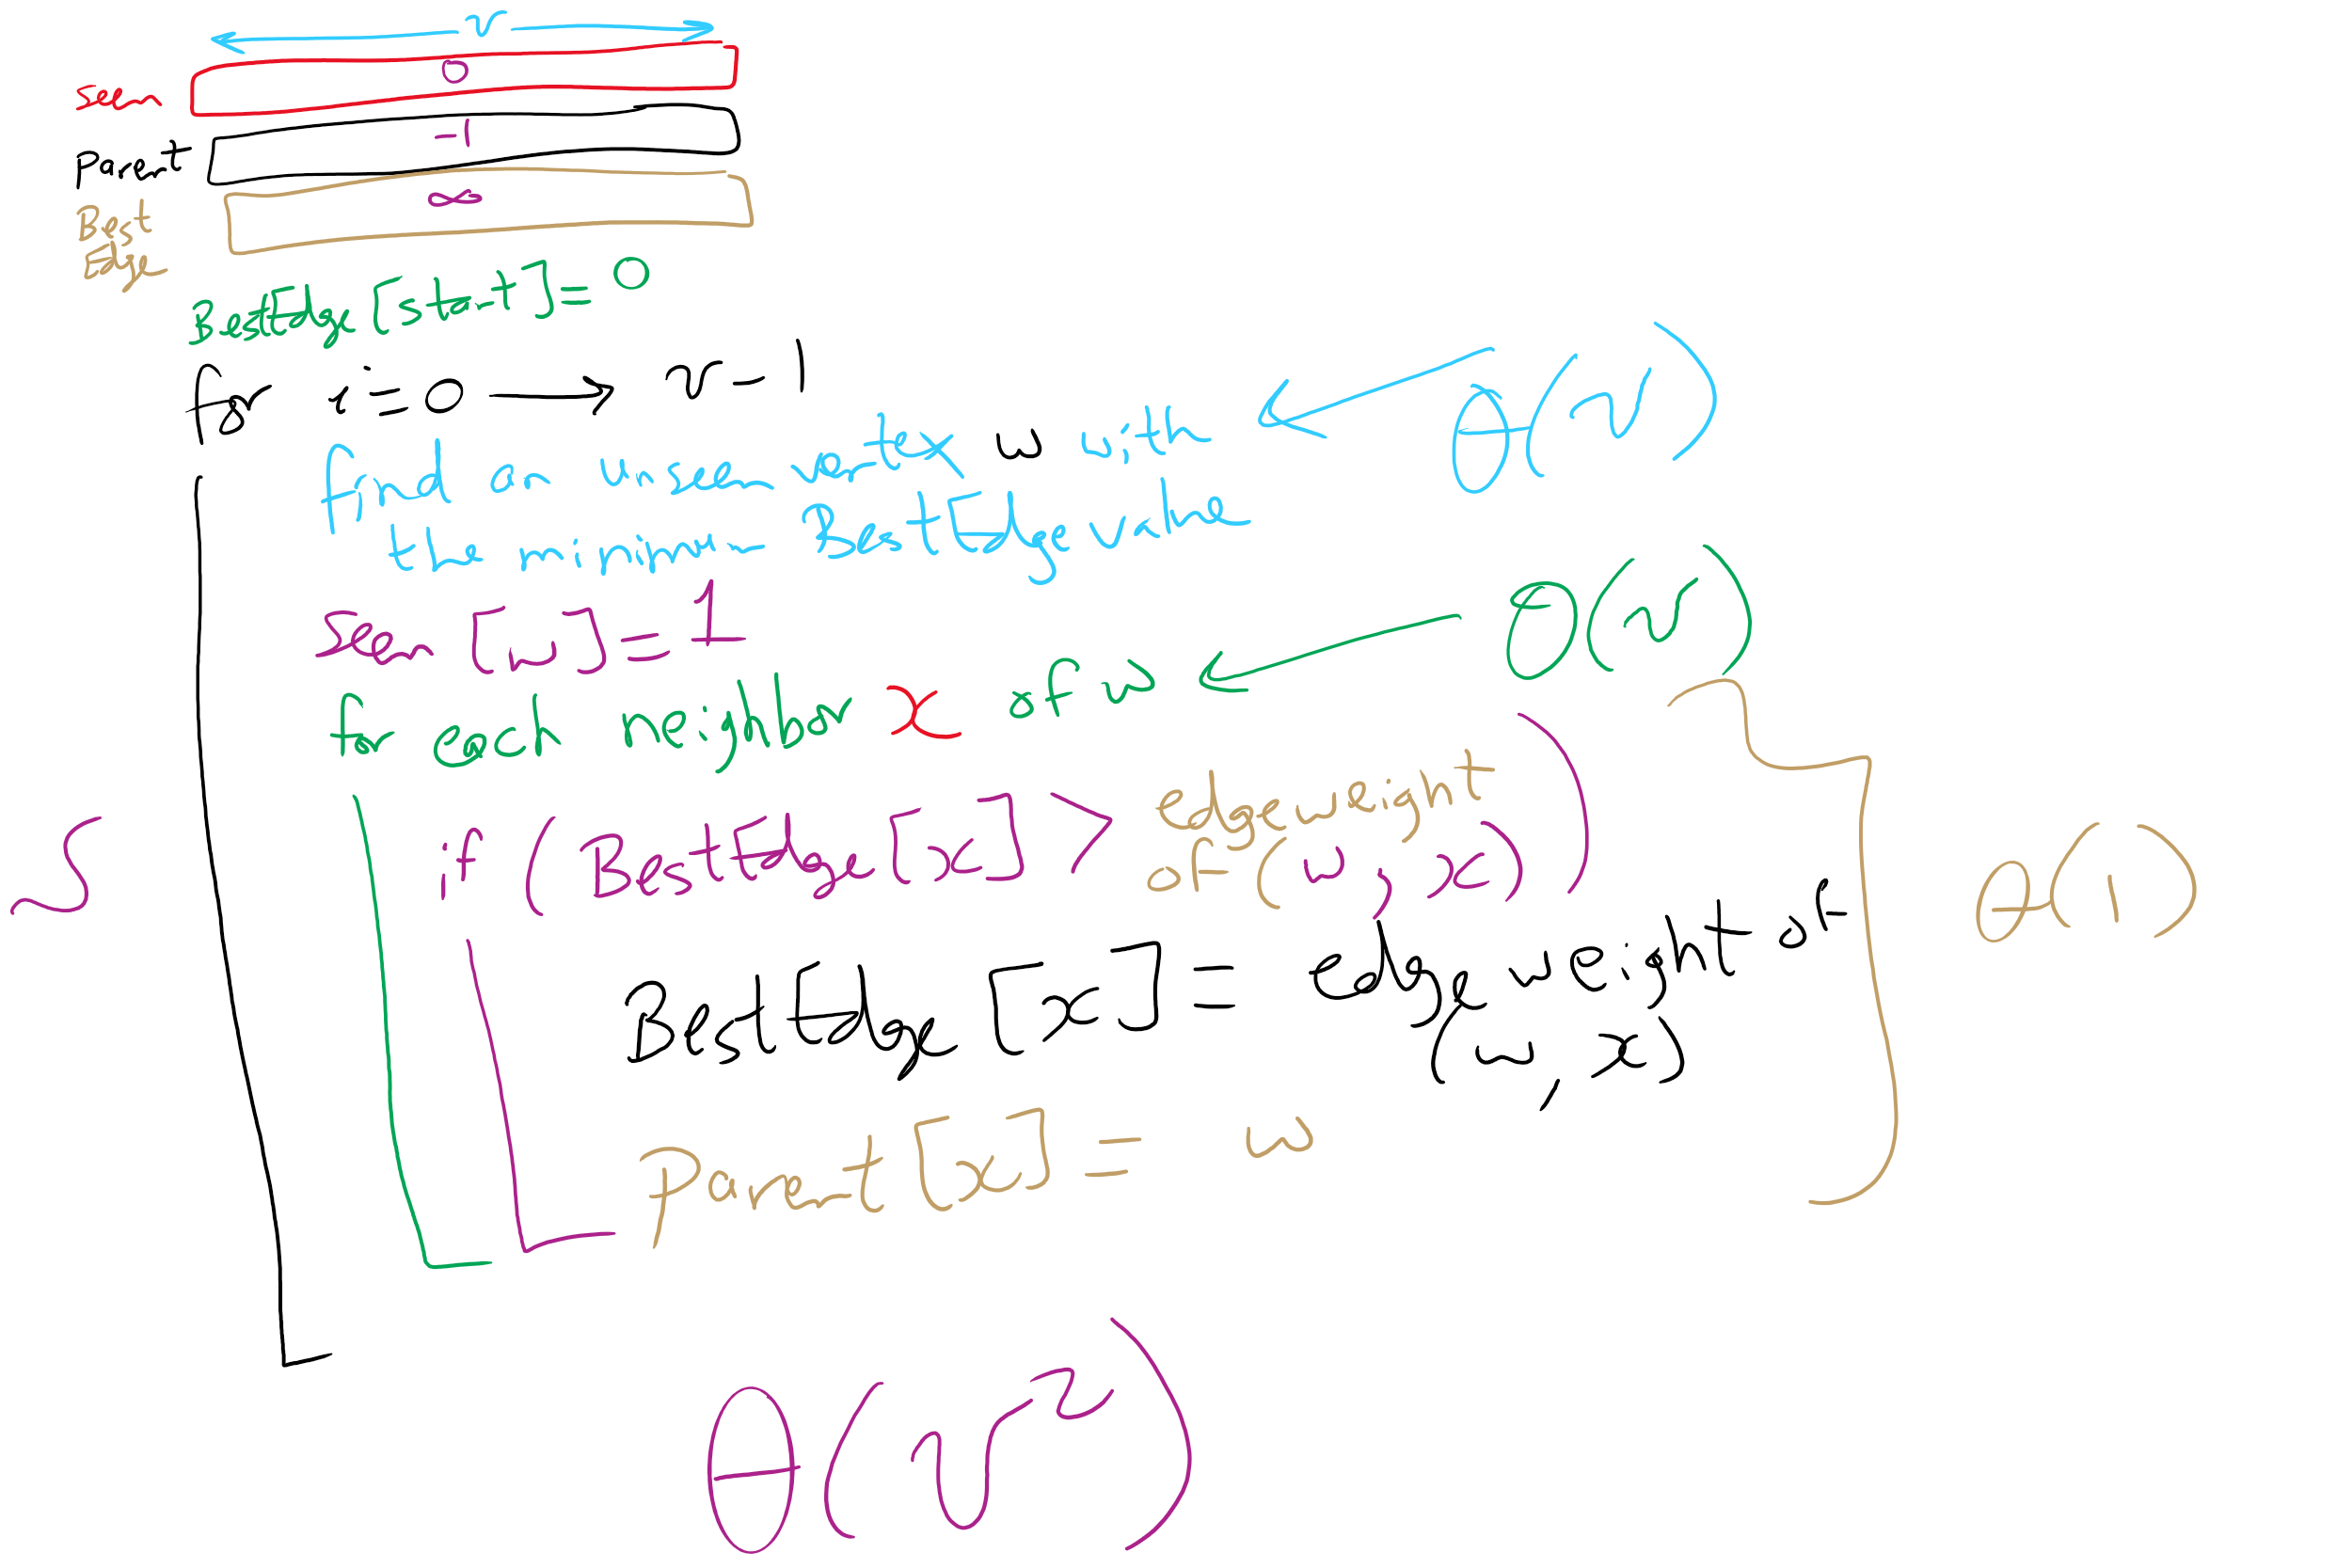 v
seen 0
Parent -1
Best ∞
Edge
BestEdge[start] = 0
for i = 0 → v - 1
find an unseen vertex w with ← θ(v)
the minimum BestEdge value
seen [w] = 1
for each neighbor x of w ← θ(v)
if ( BestEdge [x] > edge weight
of (w, x) )
BestEdge [x] = edge weight of
(w, x)
θ(1)
Parent [x] = w
θ(v²)